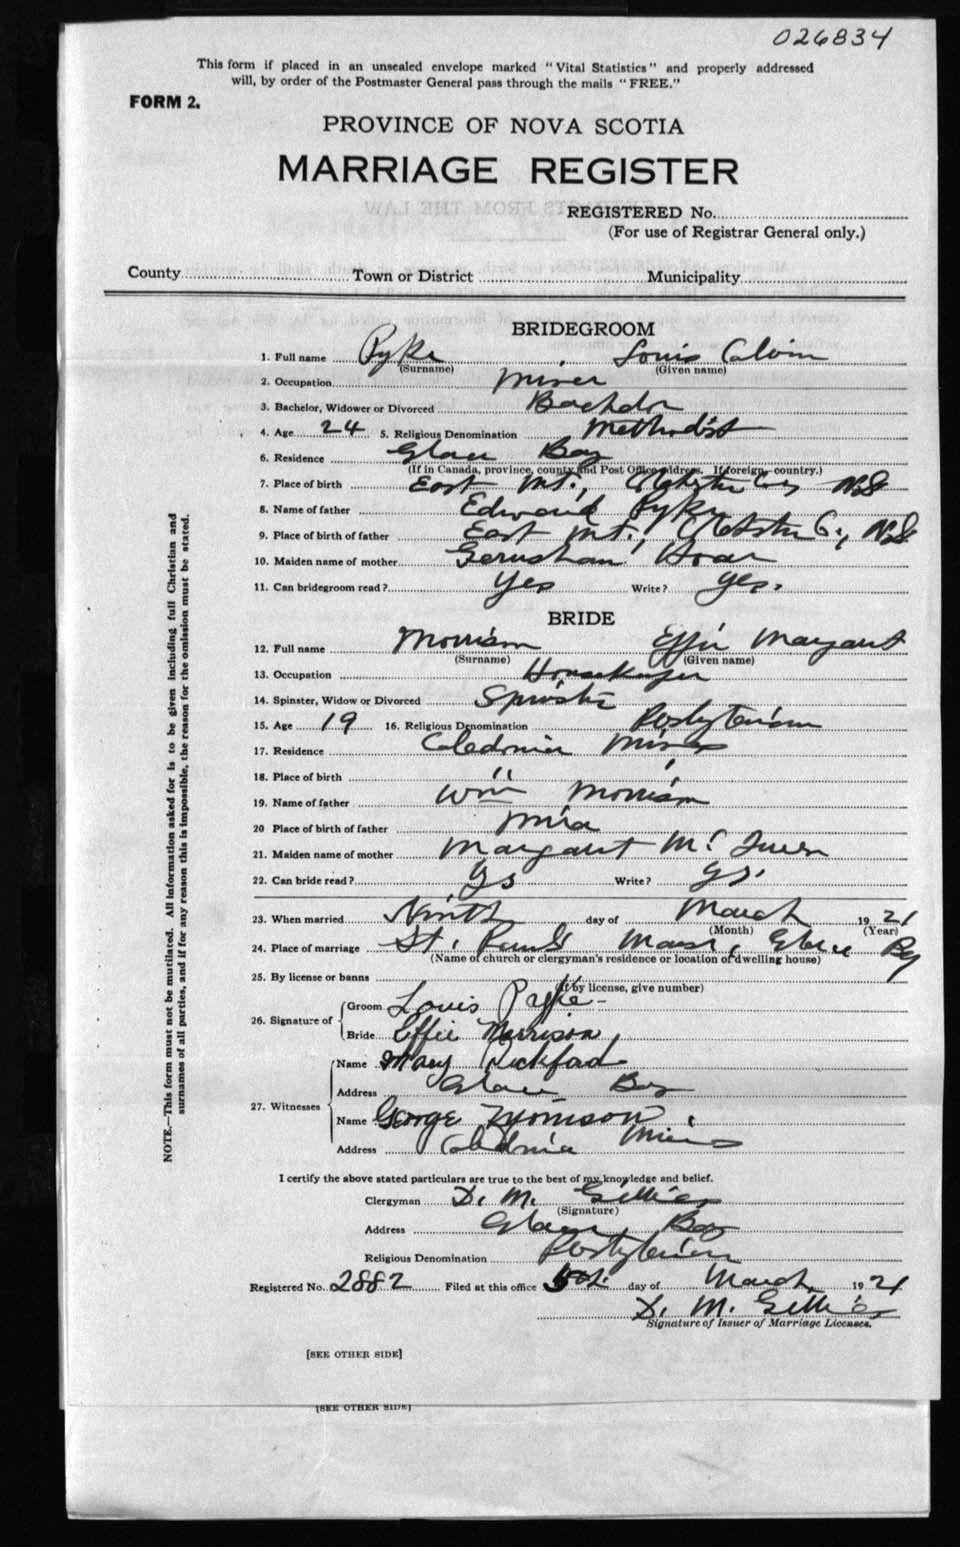 026834
This form if placed in an unsealed envelope marked "Vital Statistics" and properly addressed
will, by order of the Postmaster General pass through the mails "FREE."
FORM 2.
PROVINCE OF NOVA SCOTIA
MARRIAGE REGISTER
REGISTERED No.
(For use of Registrar General only.)
County Town or District Municipality
BRIDEGROOM
1. Full name Pyke Louis Calvin
(Surname) (Given name)
2. Occupation Miner
3. Bachelor, Widower or Divorced Bachelor
4. Age 24 5. Religious Denomination Methodist
6. Residence Glace Bay
(If in Canada, province, county and Post Office address. If foreign, country.)
7. Place of birth East Mt., Colchester Co, NS
8. Name of father Edward Pyke
9. Place of birth of father East Mt., Colchster Co, NS
10. Maiden name of mother Hoar
11. Can bridegroom read? Yes Write? Yes.
BRIDE
12. Full name Morrison Effie Margaret
(Surname) (Given name)
13. Occupation Housekeeper
14. Spinster, Widow or Divorced Spinster
15. Age 19 16. Religious Denomination Presbyterian
17. Residence Caledonia Mines
18. Place of birth "
19. Name of father Wm Morrison
20 Place of birth of father Mira
21. Maiden name of mother Margaret
22. Can bride read? Ys Write? Ys.
23. When married Ninth day of March 1921
(Month) (Year)
24. Place of marriage St. Pauls Manse, Glace Bay
(Name of church or clergyman's residence or location of dwelling house)
25. By license or banns
(If by license, give number)
26. Signature of Groom Louis Pyke
Bride Effie Morrison
27. Witnesses Name Mary Pickford
Address Glace Bay
Name George Morrison
Address Caledonia Mines
I certify the above stated particulars are true to the best of my knowledge and belief.
Clergyman D. M. Gillies
(Signature)
Address Glace Bay
Religious Denomination Presbyterian
Registered No. 2882 Filed at this office day of March 1921
D. M. Gillies
Signature of Issuer of Marriage Licenses.
[SEE OTHER SIDE]
[SEE OTHER SIDE]
NOTE.—This form must not be mutilated. All information asked for is to be given including full Christian and
surnames of all parties, and if for any reason this is impossible, the reason for the omission must be stated.